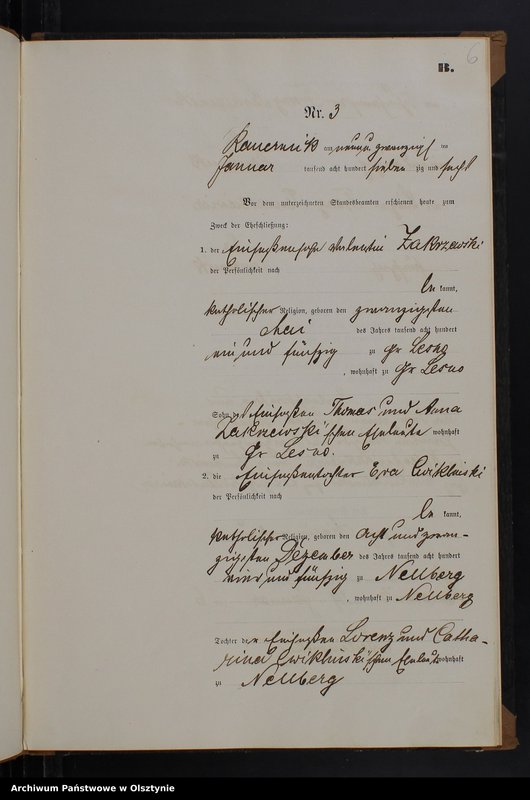 6
B.
Nr. 3
am neun u. zwanzigsten
Januar tausend acht hundert sieben zig und sechs
Vor dem unterzeichneten Standesbeamten erschienen heute zum
Zweck der Eheschließung:
1. der Einsassensohn Valentin Zakrzewski
der Persönlichkeit nach
kannt,
katholischer Religion, geboren den zwanzigsten
Mai des Jahres tausend acht hundert
ein und fünfzig zu Gr Lesno
, wohnhaft zu Gr Lesno
Sohn der Einsassen Thomas und Anna
Zakrzewski'schen Eheleute wohnhaft
zu Gr Lesno.
2. die Einsassentochter Eva Cwiklinski
der Persönlichkeit nach
kannt,
katholischer Religion, geboren den acht und zwan-
zigsten Dezember des Jahres tausend acht hundert
vier und fünfzig zu Nellberg
, wohnhaft zu Nellberg
Tochter der Einsassen Lorenz und Catha-
rina Cwiklinski'schen Eheleute wohnhaft
zu Nellberg
Archiwum Państwowe w Olsztynie